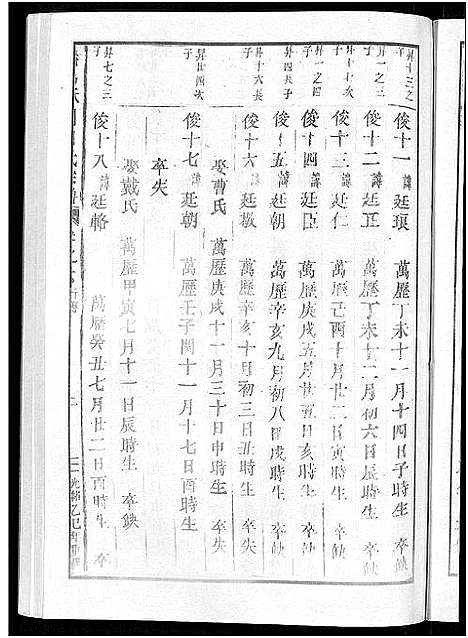 昇十三之子 俊十一 諱廷瑱 萬歷丁未十一月十四日子時生 卒缺
昇一之次子 俊十二 諱廷正 萬歷丁未十二月初六日辰時生 卒缺
昇一之四子 俊十三 諱廷仁 萬歷己酉十月廿二日寅時生 卒缺
俊十四 諱廷臣 萬歷庚戌五月廿五日亥時生 卒缺
昇四長子 俊十五 諱廷朝 萬歷辛亥九月初八日戌時生 卒缺
昇十六長子 俊十六 諱廷敬 萬歷辛亥十月初三日丑時生 卒失
娶曹氏 萬歷庚戌十一月三十日申時生 卒失
昇廿四次子 俊十七 諱廷朝 萬歷壬子閏十一月十七日酉時生
卒失
娶戴氏 萬歷甲寅七月十一日辰時生 卒缺
昇七之三子 俊十八 諱廷輅 萬歷癸丑七月廿二日酉時生 卒
光緒乙巳年